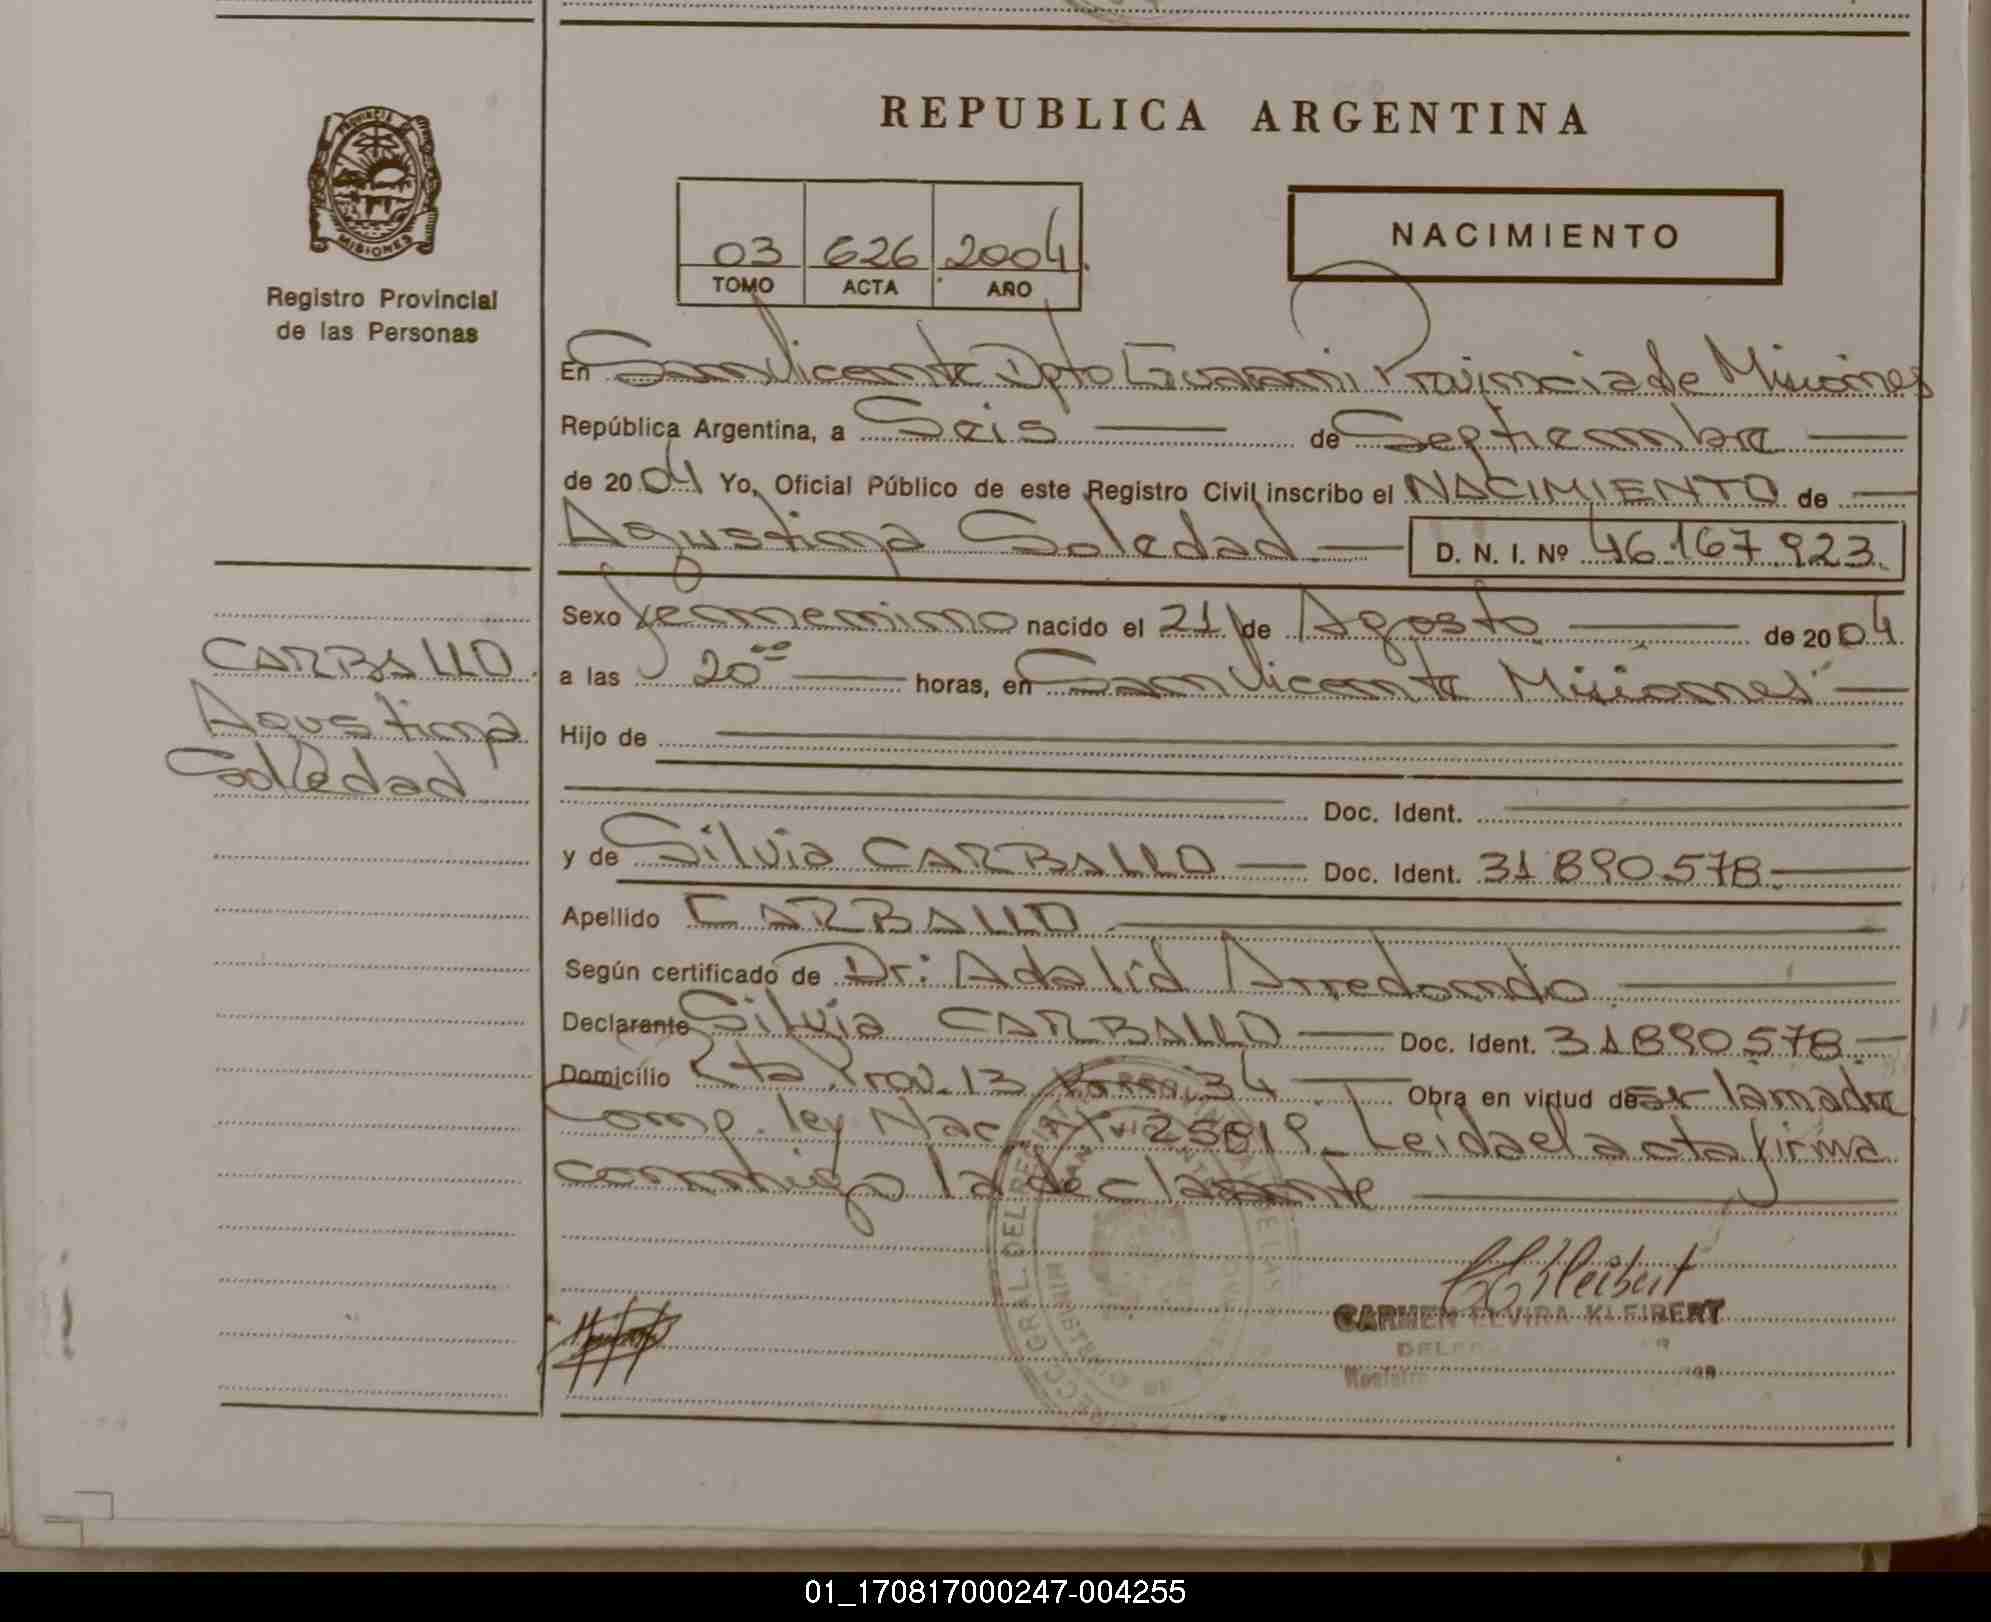 REPUBLICA ARGENTINA
PROVINCIA DE
MISIONES
Registro Provincial
de las Personas
03 626 2004
TOMO ACTA AÑO
NACIMIENTO
En San Vicente Dpto Guarani Provincia de Misiones
República Argentina, a Seis de Septiembre
de 2004 Yo, Oficial Público de este Registro Civil inscribo el NACIMIENTO de
Agustina Soledad D. N. I. Nº 46.167.923.
Sexo femenino nacido el 21 de Agosto de 2004
a las 20 horas, en San Vicente Misiones
Hijo de
Doc. Ident.
y de Silvia CARBALLO Doc. Ident. 31.890.578.
Apellido CARBALLO
Según certificado de Dr: Adalid Arredondo
Declarante Silvia CARBALLO Doc. Ident. 31.890.578.
Domicilio Rta Prov. 13 34 Obra en virtud de ser la madre
Comp. ley Nac. Leida el acta firma
conmigo la declarante
CARBALLO
Agustina
Soledad
C E Kleibert
CARMEN ELVIRA KLEIBERT
01_170817000247-004255